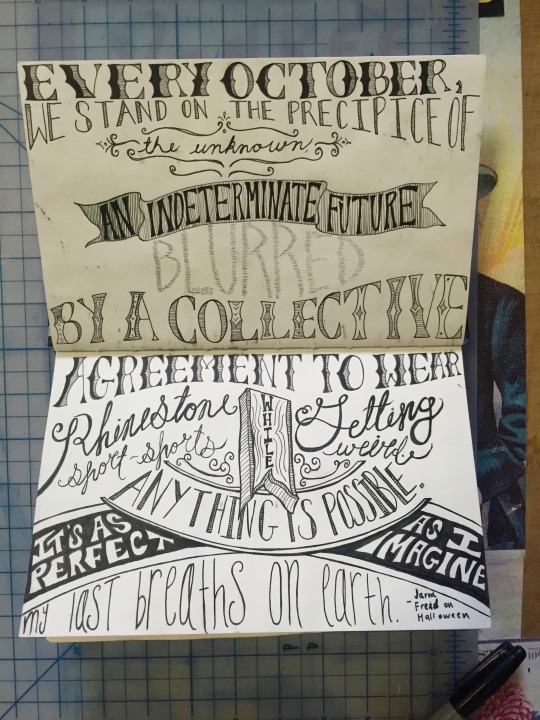 EVERY OCTOBER,
WE STAND ON THE PRECIPICE OF
the unknown,
AN INDETERMINATE FUTURE
BLURRED
BY A COLLECTIVE
AGREEMENT TO WEAR
Rhinestone
sport-sports
WHILE
Getting
weird.
ANYTHING IS POSSIBLE.
IT'S AS
PERFECT
AS I
IMAGINE
my last breaths on earth.
-Jared
Freid on
Halloween